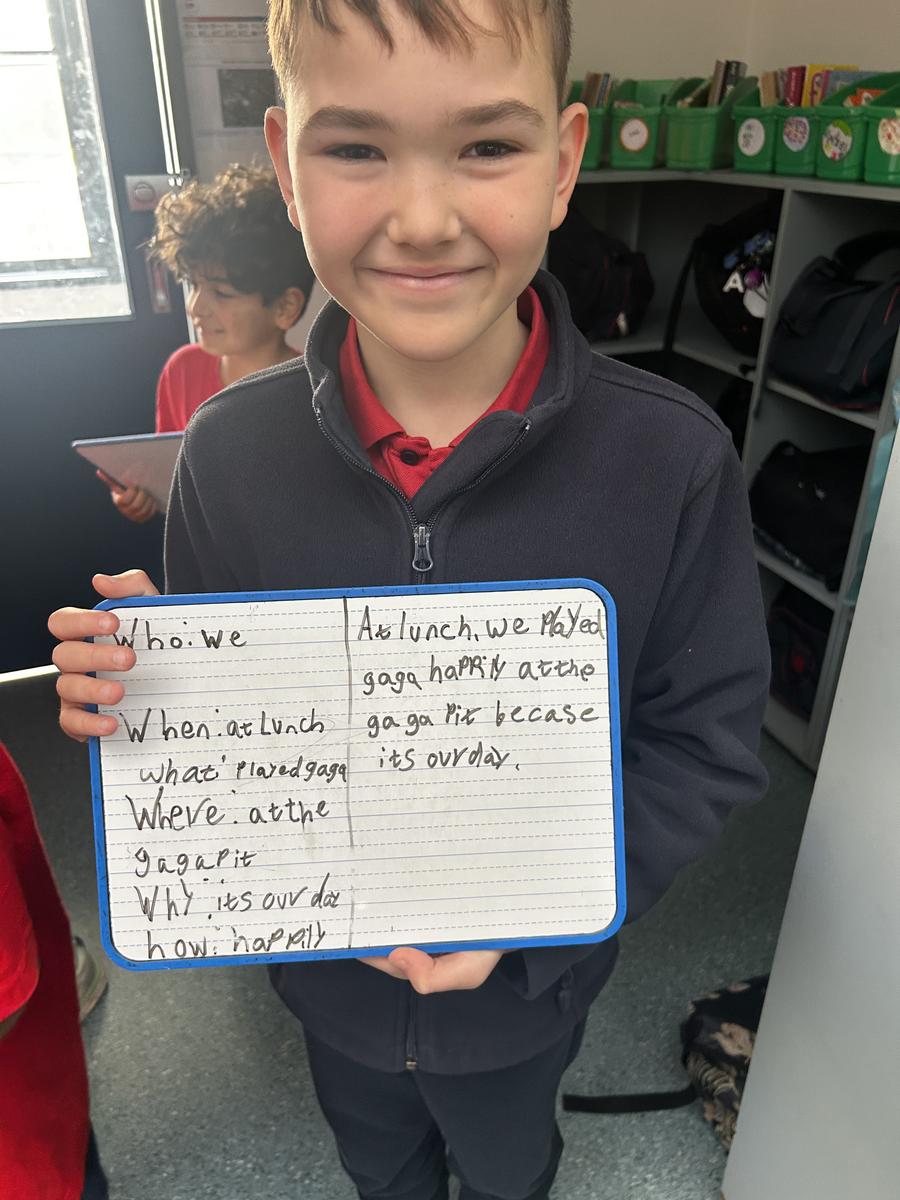 Who: we
When: at Lunch
what: Played gaga
Where: at the
gaga Pit
Why: its our day
how: happily
At lunch, we Played
gaga happily at the
gaga Pit becase
its our day.